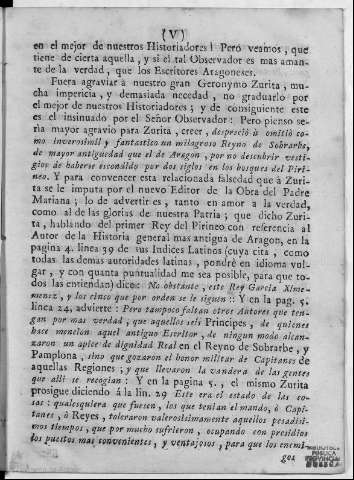 (V)
en el mejor de nuestros Historiadores! Peró veamos, que
tiene de cierta aquella, y si el tal Observador es mas aman-
te de la verdad, que los Escritores Aragoneses.
Fuera agraviar à nuestro gran Geronymo Zurita, mu-
cha impericia, y demasiada necedad, no graduarlo por
el mejor de nuestros Historiadores; y de consiguiente este
es el insinuado por el Señor Observador: Pero pienso se-
ría mayor agravio para Zurita, creer, despreció ù omitió co-
mo inverosimil y fantastico un milagroso Reyno de Sobrarbe,
de mayor antiguedad que el de Aragon, por no descubrir vesti-
gios de haberse escondido por dos siglos en los bosques del Piri-
neo. Y para convencer esta relacionada falsedad que à Zuri-
ta se le imputa por el nuevo Editor de la Obra del Padre
Mariana; lo de advertir es, tanto en amor à la verdad,
como al de las glorias de nuestra Patria; que dicho Zuri-
ta, hablando del primer Rey del Pirineo con referencia al
Autor de la Historia general mas antigua de Aragon, en la
pagina 4. linea 39 de sus Indices Latinos (cuya cita, como
todas las demas autoridades latinas, pondré en idioma vul-
gar, y con quanta puntualidad me sea posible, para que to-
dos las entiendan) dice: No obstante, este Rey Garcia Xime-
menez, y los cinco que por orden se le siguen:: Y en la pag. 5.
linea 24, advierte: Pero tampoco faltan otros Autores que ten-
gan por mas verdad, que aquellos seis Principes, de quienes
hace mencion aquel antiguo Escritor, de ningun modo alcan-
zaron un apice de dignidad Real en el Reyno de Sobrarbe, y
Pamplona, sino que gozaron el honor militar de Capitanes de
aquellas Regiones; y que llevaron la vandera de las gentes
que alli se recogian: Y en la pagina 5., el mismo Zurita
prosigue diciendo á la lin. 29 Este era el estado de las co-
sas: qualesquiera que fuesen, los que tenian el mando, ò Capi-
tanes, ò Reyes, toleraron valerosisimamente aquellos pesadisi-
mos tiempos, que por mucho sufrieron, ocupando con presidios
los puestos mas convenientes, y ventajosos, para que los enemi-
gos
BIBLIOTECA
PUBLICA
PROVINCIAL